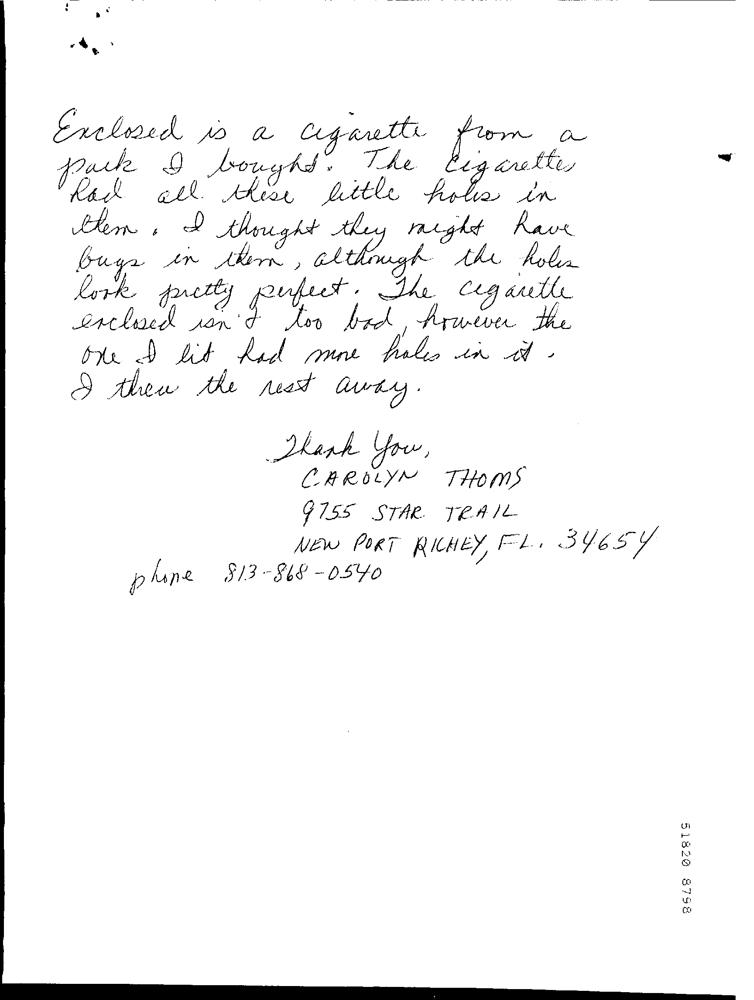 Enclosed is a cigarette from a
pack I bought. The cigarettes
had all these little holes in
them. I thought they might have
bugs in them, although the holes
look pretty perfect. The cigarette
enclosed isn't too bad, however the
one I lit had more holes in it.
I threw the rest away.
Thank You,
CAROLYN THOMS
9755 STAR TRAIL
NEW PORT RICHEY, FL. 34654
phone 813-868-0540
51820 8798